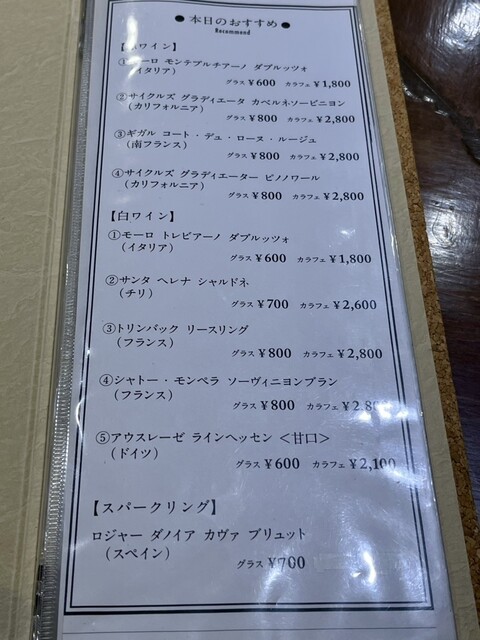 ● 本日のおすすめ ●
Recommend
【赤ワイン】
①モーロ モンテプルチアーノ ダブルッツォ
(イタリア)
グラス ¥600 カラフェ ¥1,800
②サイクルズ グラディエータ カベルネソービニヨン
(カリフォルニア)
グラス ¥800 カラフェ ¥2,800
③ギガル コート・デュ・ローヌ・ルージュ
(南フランス)
グラス ¥800 カラフェ ¥2,800
④サイクルズ グラディエーター ピノノワール
(カリフォルニア)
グラス ¥800 カラフェ ¥2,800
【白ワイン】
①モーロ トレビアーノ ダブルッツォ
(イタリア)
グラス ¥600 カラフェ ¥1,800
②サンタ ヘレナ シャルドネ
(チリ)
グラス ¥700 カラフェ ¥2,600
③トリンバック リースリング
(フランス)
グラス ¥800 カラフェ ¥2,800
④シャトー・モンペラ ソーヴィニヨンブラン
(フランス)
グラス ¥800 カラフェ ¥2,800
⑤アウスレーゼ ラインヘッセン <甘口>
(ドイツ)
グラス ¥600 カラフェ ¥2,100
【スパークリング】
ロジャー ダノイア カヴァ ブリュット
(スペイン)
グラス ¥700